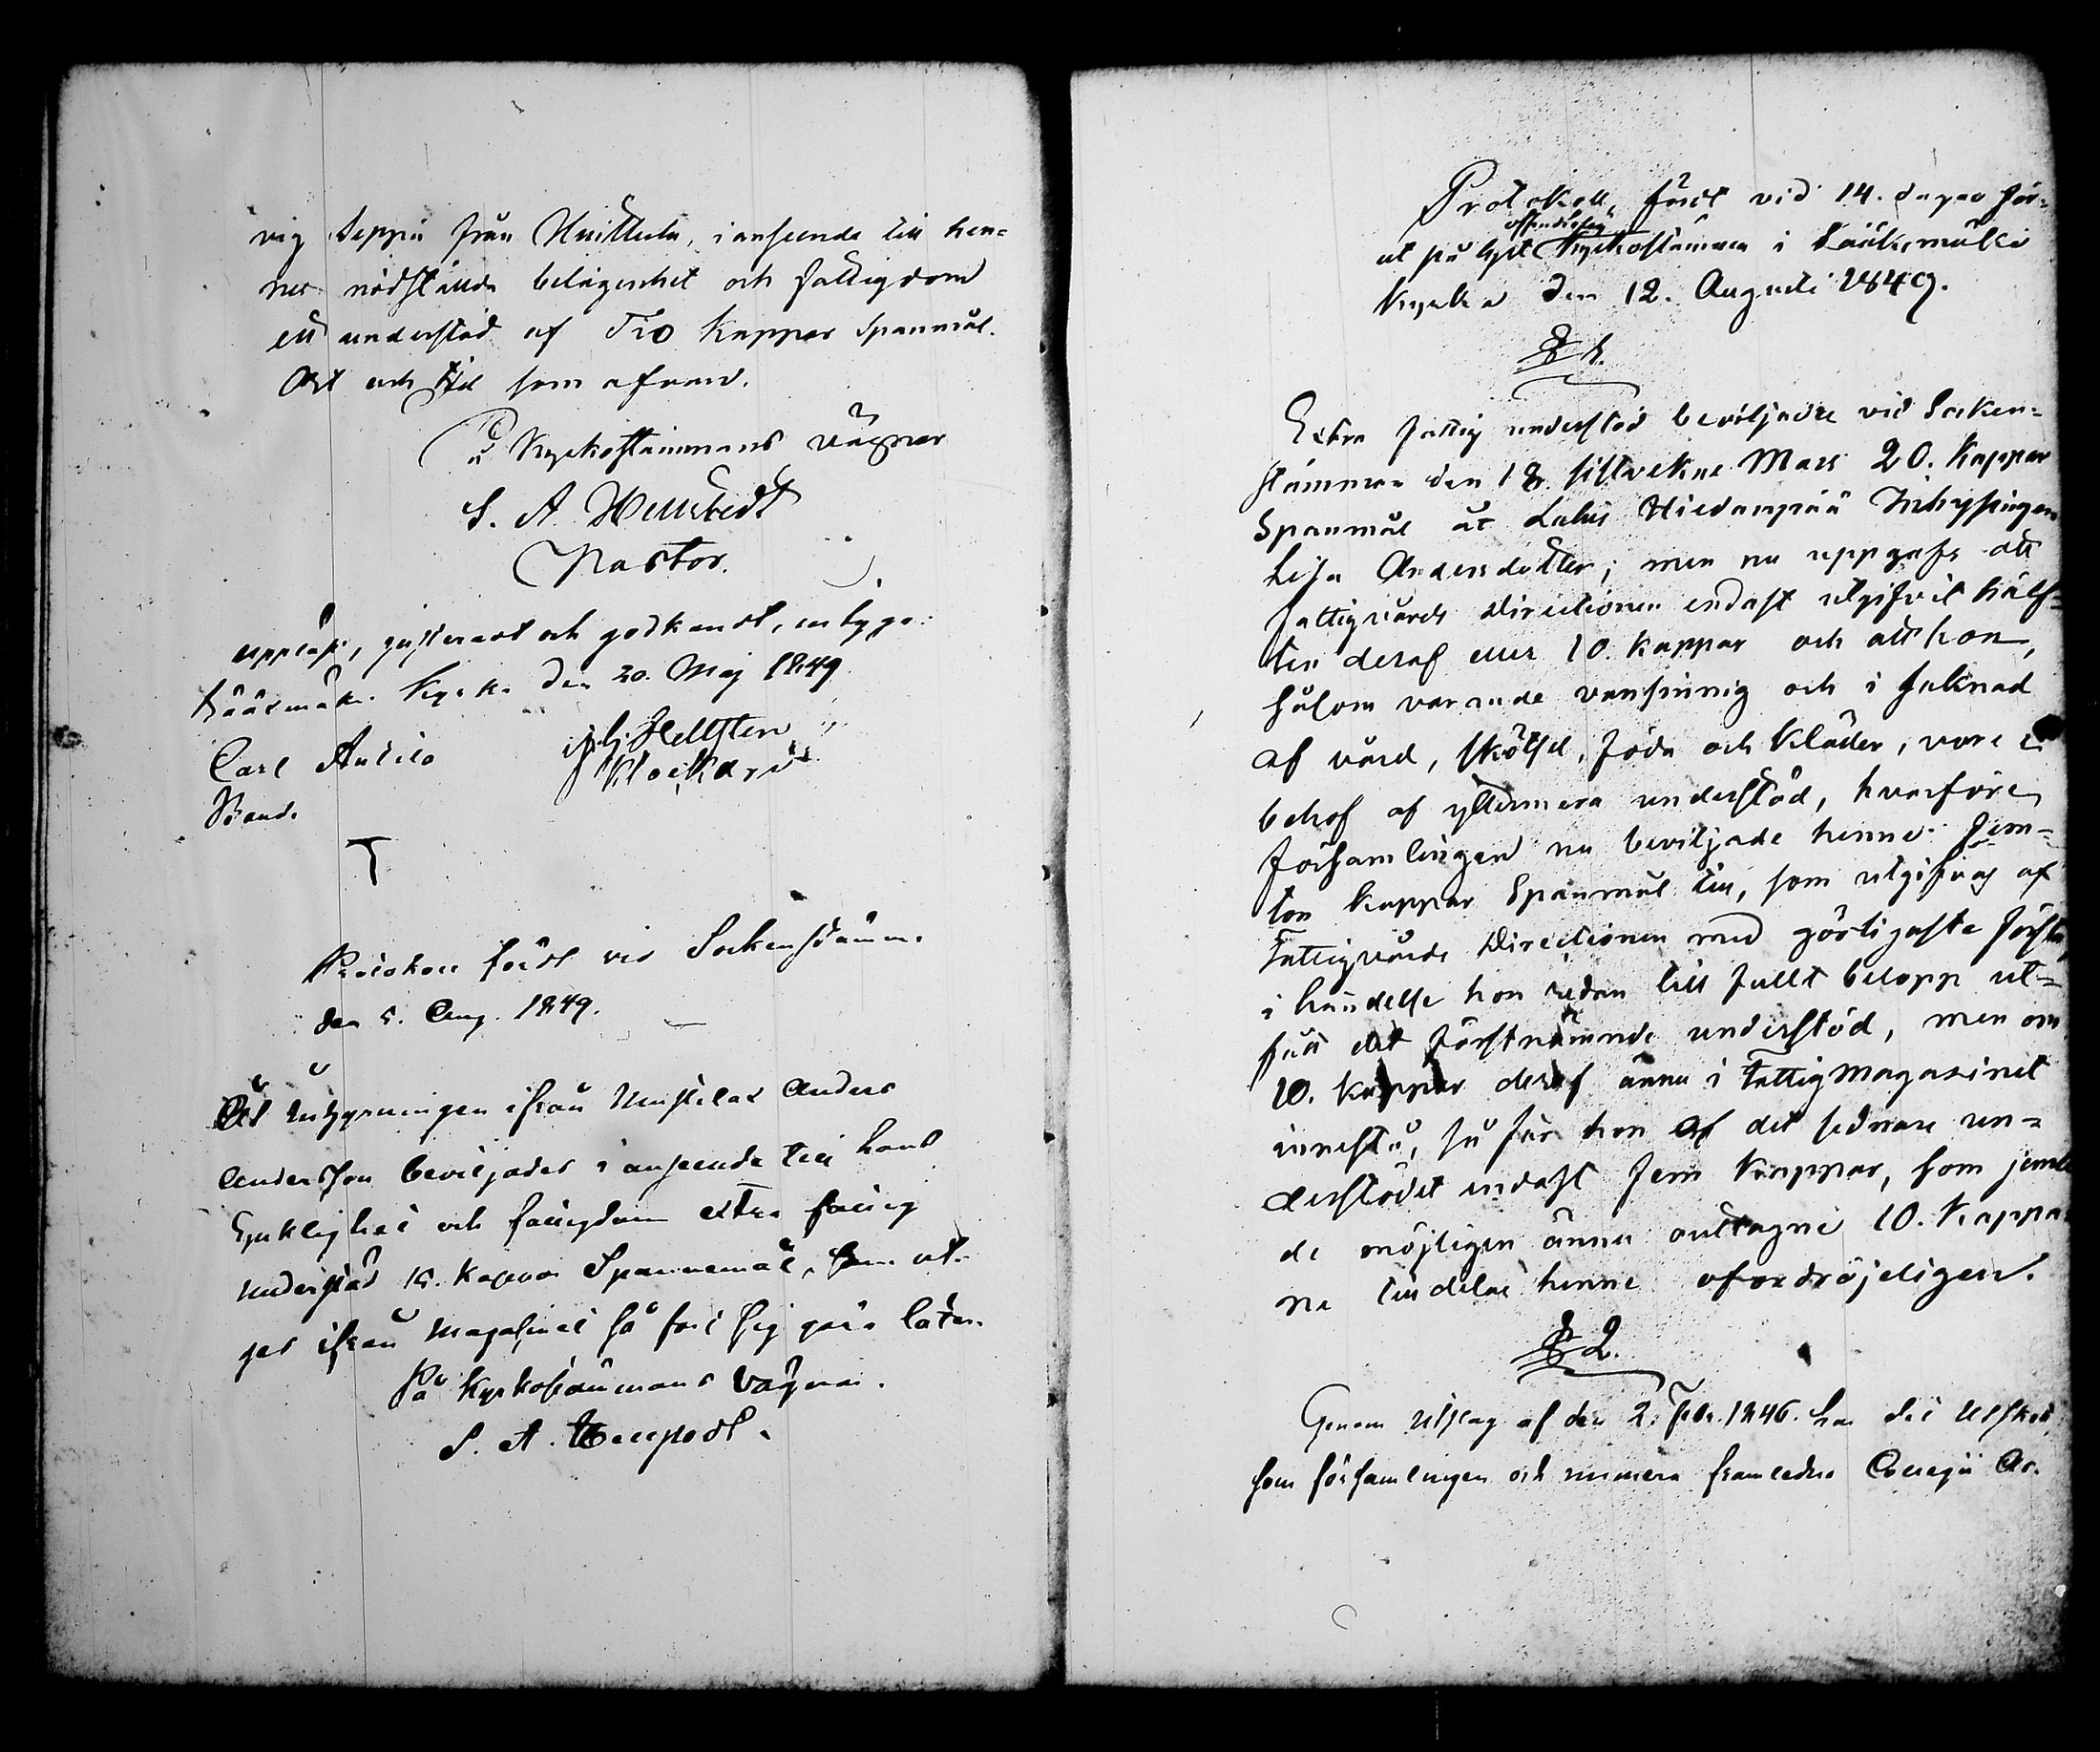 vig Seppä från Huittula, i anseende till hen-
nes nödstälda belägenhet och fattigdom
ett understöd af Tio kappar Spanmål.
Ort och tid som ofvan.
På Kyrkostämmans vägnar
S. A. Hellstedt
Pastor.
uppläst, justerat och godkändt, intyga.
Sääxmäki Kyrka den 20. Maj 1849.
Carl Anttila
G. Hellsten
Klockare
Bonde
T
Protokoll fördt vid Sockenstämma
den 5. Aug. 1849.
Åt Inhysningen ifrån Anders
Andersson beviljades i anseende till hans
Sjuklighet och fattigdom extra fattig
understöd 15. kappar Spannemål, som ut-
ges ifrån Magasinet så fort sig göra låter.
På Kyrkostämmans vägnar.
S. A. Hellstedt.
Protokoll, fördt vid 14. dagar för-
offentligen
ut pålyst Kyrkostämma i Sääksmäki
Kyrka den 12. Augusti 1849.
§ 1.
Extra fattig understöd beviljades vid Socken-
stämman den 18. sistvekne Mars 20. kappar
Spanmål åt Lahis Hiedanpää Inhysingen
Lisa Andersdotter; men nu uppgafs att
fattigvårds Directionen endast utgifvit hälf-
ten deraf eller 10. kappar och att hon,
såsom varande vansinnig och i saknad
af vård, skötsel, föda och kläder, vore i
behof af yttermera understöd, hvarföre
Församlingen nu beviljade henne Fem-
ton kappar Spanmål till, som utgifvas af
Fattigvårds Directionen med görligaste första
i händelse hon redan till fullt belopp ut-
fått det förstnämnde understöd, men om
10. kappar deraf ännu i Fattigmagasinet
innestå, så får hon af det sednare un-
derstödet endast fem kappar, som jemte
de möjligen ännu outtagne 10. kappar-
ne tilldelas henne ofördröjeligen.
§ 2.
Genom Utslag af den 2. Febr. 1846. har det Utskott,
som församlingen och numera framledne Collegii As-